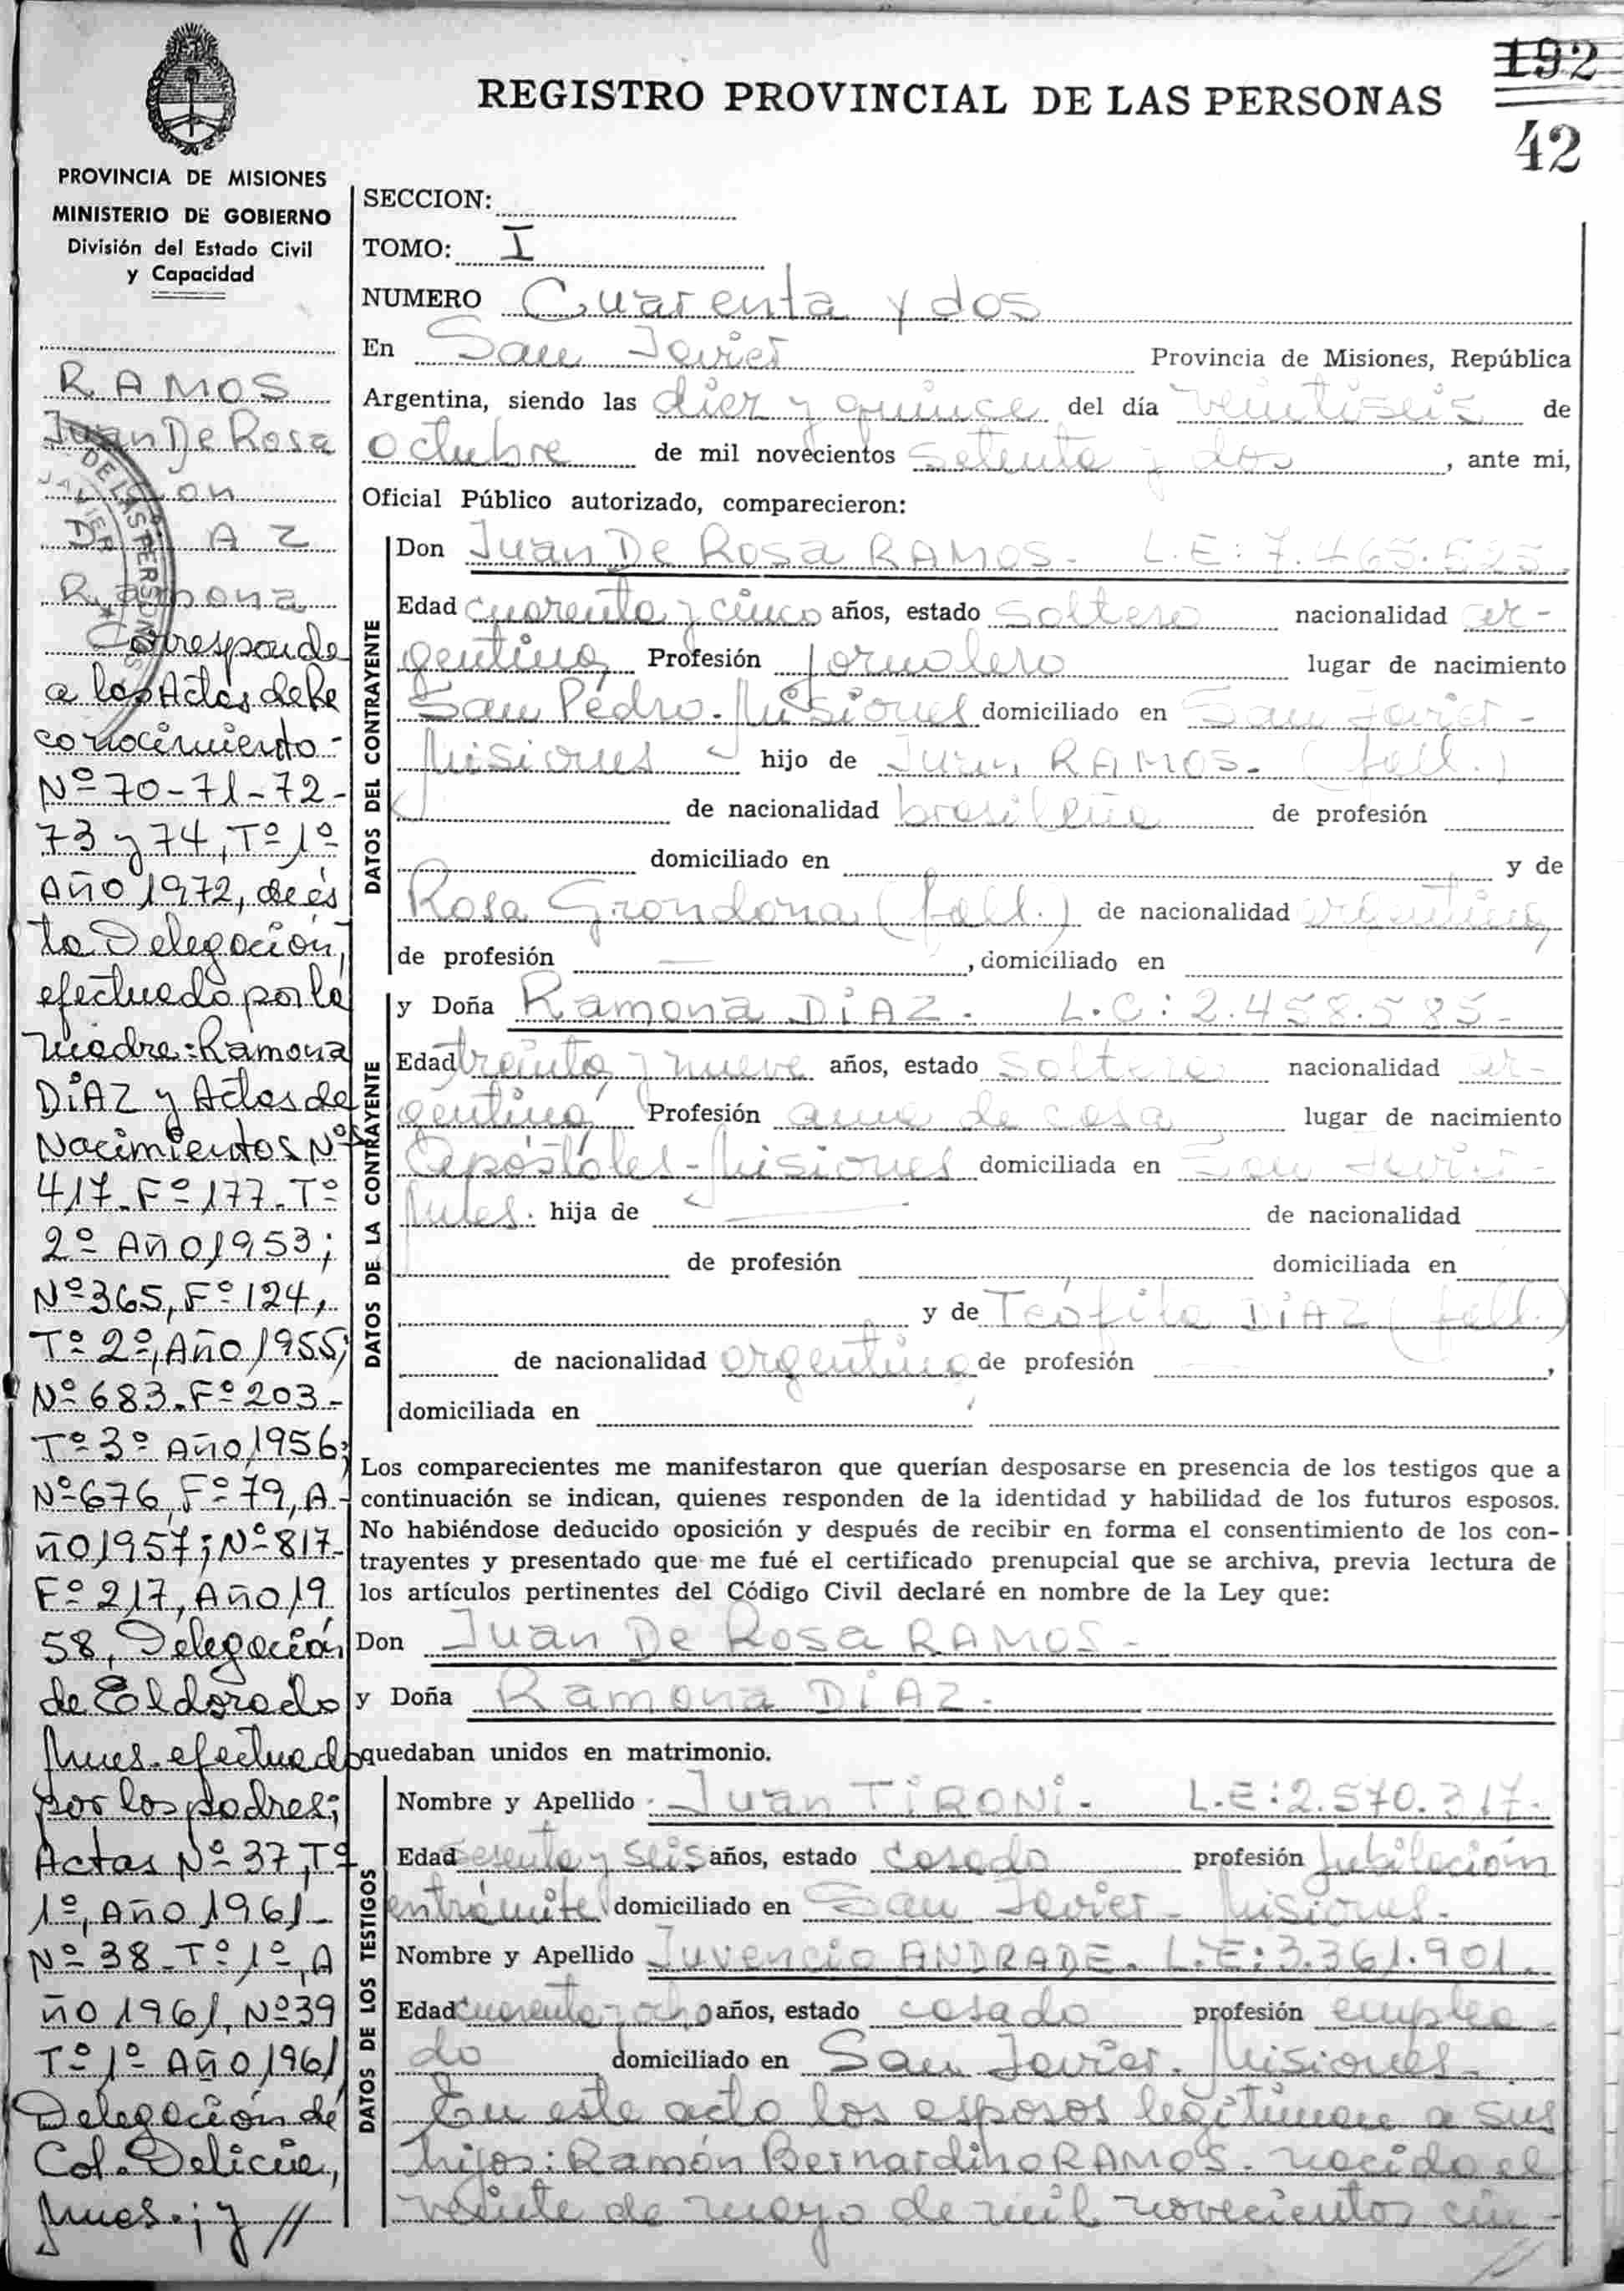 192
42
REGISTRO PROVINCIAL DE LAS PERSONAS
PROVINCIA DE MISIONES
MINISTERIO DE GOBIERNO
División del Estado Civil
y Capacidad
RAMOS
Juan De Rosa
con
DíAZ
Ramona
Corresponde
a las Actas de Re
conocimiento-
Nº 70-71-72-
73 y 74, Tº 1º
Año 1972, de és
ta Delegación,
efectuado por la
madre: Ramona
DíAZ y Actas de
Nacimientos Nº
417-Fº 177-Tº
2º Año 1953;
Nº 365, Fº 124,
Tº 2º, Año 1955;
Nº 683-Fº 203-
Tº 3º Año 1956;
Nº 676, Fº 79, A-
ño 1957; Nº 817-
Fº 217, Año 19
58, Delegación
de Eldorado
Mnes. efectuado
por los padres;
Actas Nº 37, Tº
1º, Año 1961-
Nº 38-Tº 1º, A
ño 1961, Nº 39
Tº 1º Año 1961
Delegación de
Col. Delicia,
Mnes.; y //
DE LAS PERSONAS
JAVIER
SECCION:
TOMO: I
NUMERO Cuarenta y dos
En San Javier Provincia de Misiones, República
Argentina, siendo las diez y quince del día veintiseis de
octubre de mil novecientos setenta y dos, ante mi,
Oficial Público autorizado, comparecieron:
DATOS DEL CONTRAYENTE
Don Juan De Rosa RAMOS- L.E: 7.465.525
Edad cuarenta y cinco años, estado soltero nacionalidad ar-
gentina Profesión jornalero lugar de nacimiento
San Pedro-Misiones domiciliado en San Javier-
Misiones hijo de Juan RAMOS- (fall.)
de nacionalidad brasileña de profesión
domiciliado en y de
Rosa Grondona (fall.) de nacionalidad argentina,
de profesión —, domiciliado en
DATOS DE LA CONTRAYENTE
y Doña Ramona DíAZ- L.C: 2.458.585-
Edad treinta y nueve años, estado soltera nacionalidad ar-
gentina Profesión ama de casa lugar de nacimiento
Apóstoles-Misiones domiciliada en San Javier-
Mnes. hija de — de nacionalidad
de profesión domiciliada en
y de Teófila DíAZ (fall.)
de nacionalidad argentina de profesión ,
domiciliada en
Los comparecientes me manifestaron que querían desposarse en presencia de los testigos que a
continuación se indican, quienes responden de la identidad y habilidad de los futuros esposos.
No habiéndose deducido oposición y después de recibir en forma el consentimiento de los con-
trayentes y presentado que me fué el certificado prenupcial que se archiva, previa lectura de
los artículos pertinentes del Código Civil declaré en nombre de la Ley que:
Don Juan De Rosa RAMOS-
y Doña Ramona DíAZ-
quedaban unidos en matrimonio.
DATOS DE LOS TESTIGOS
Nombre y Apellido Juan TiRONi- L.E: 2.570.317-
Edad sesenta y seis años, estado casado profesión Jubilación
en trámite domiciliado en San Javier-Misiones-
Nombre y Apellido Juvencio ANDRADE- L.E: 3.361.901-
Edad cuarenta y ocho años, estado casado profesión emplea
do domiciliado en San Javier-Misiones-
En este acto los esposos legitiman a sus
hijos: Ramón Bernardino RAMOS- nacido el
veinte de mayo de mil novecientos cin-
//